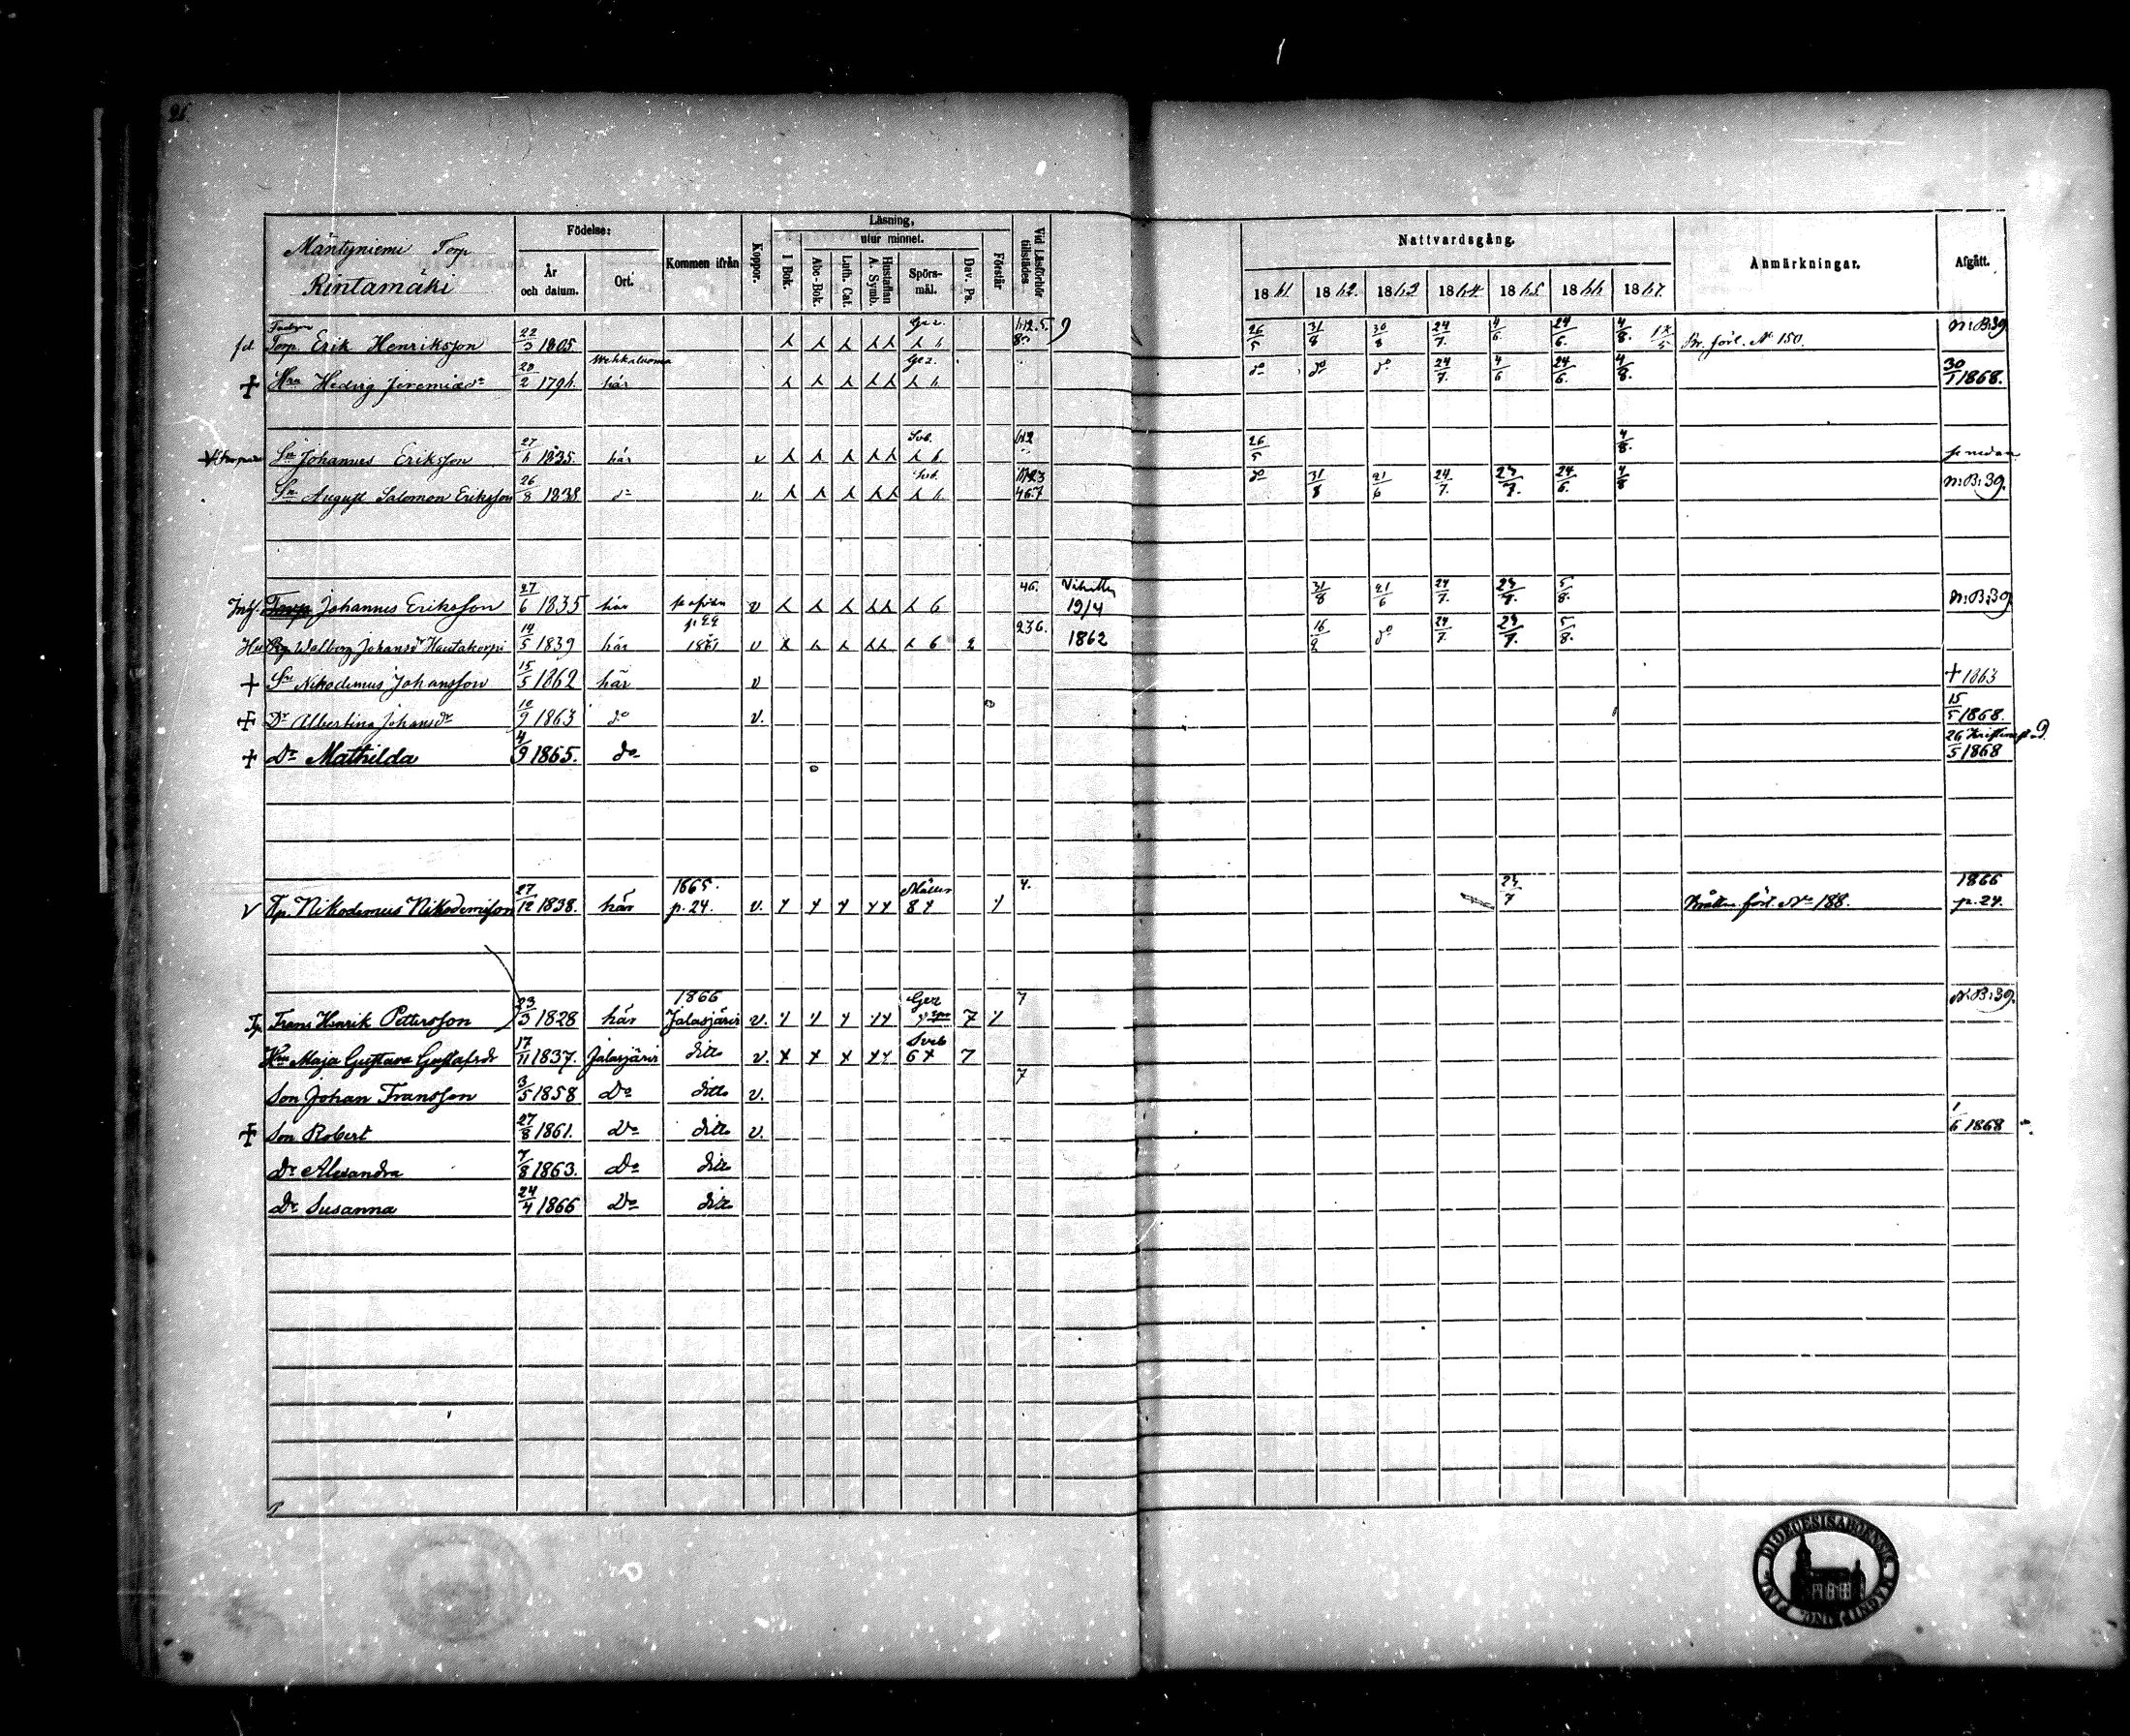 26
Mäntyniemi Torp
Rintamäki
Födelse:
År och datum.
Ort.
Kommen ifrån
Koppor.
Läsning,
utur minnet.
I Bok.
Abc Bok.
Luth. Cat.
Hustaflan A. Symb.
Spörsmål.
Dav. Ps.
Förstår
Vid Läsförhör tillstädes
Nattvardsgång.
1861 1862. 1863 1864 1865 1866 1867.
Anmärkningar.
Afgått.
fd. Torp. Erik Henriksson 22/3 1805 26/5 31/8 30/8 24/7. 4/6. 24/6. 4/8. Br. förl. No 150. n:B:39
+ Hru Hedvig Jeremiæ dr 28/2 1796. här do do do 24/7. 4/6 24/6. 4/8. 30/1 1868.
Sn Johannes Eriksson 27/6 1835. här v 26/5 4/8.
Sn August Salomon Eriksson 26/8 1838 do v do 31/8 21/6 24/7. 23/7. 24/6. 4/8 n:B:39.
Inh. Torp Johannes Eriksson 27/6 1835 här v 6 46. Vihitty 19/4 31/8 21/6 24/7. 23/7. 5/8. n:B:39
Walborg Johansdr Hautakorpi 14/5 1839 här 1861 v 6 2 236. 1862 16/9 do 24/7. 23/7. 5/8.
+ Sn Nikodemus Johansson 15/5 1862 här v + 1863
+ Dr Albertina Johansdr 10/9 1863 do v. 15/5 1868.
+ Dr Mathilda 4/9 1865. do 26/5 1868
v Tp. Nikodemus Nikodemisson 27/12 1838. här 1865. p. 24. v. 8 4. 23/7 förl. No 188. 1866 p. 24.
Tp. Frans Henrik Pettersson 23/3 1828 här 1866 Jalasjärvi v. 7 7 N:B:39.
Hru Maja Gustava Gustafsdr 17/11 1837. Jalasjärvi ditto v. 6 7
Son Johan Fransson 3/5 1858 Do ditto v. 7
+ Son Robert 27/8 1861. Do ditto v. 1/6 1868
Dr Alexandra 7/8 1863. Do ditto
Dr Susanna 24/4 1866 Do ditto
DIOECESIS ABOENSIS